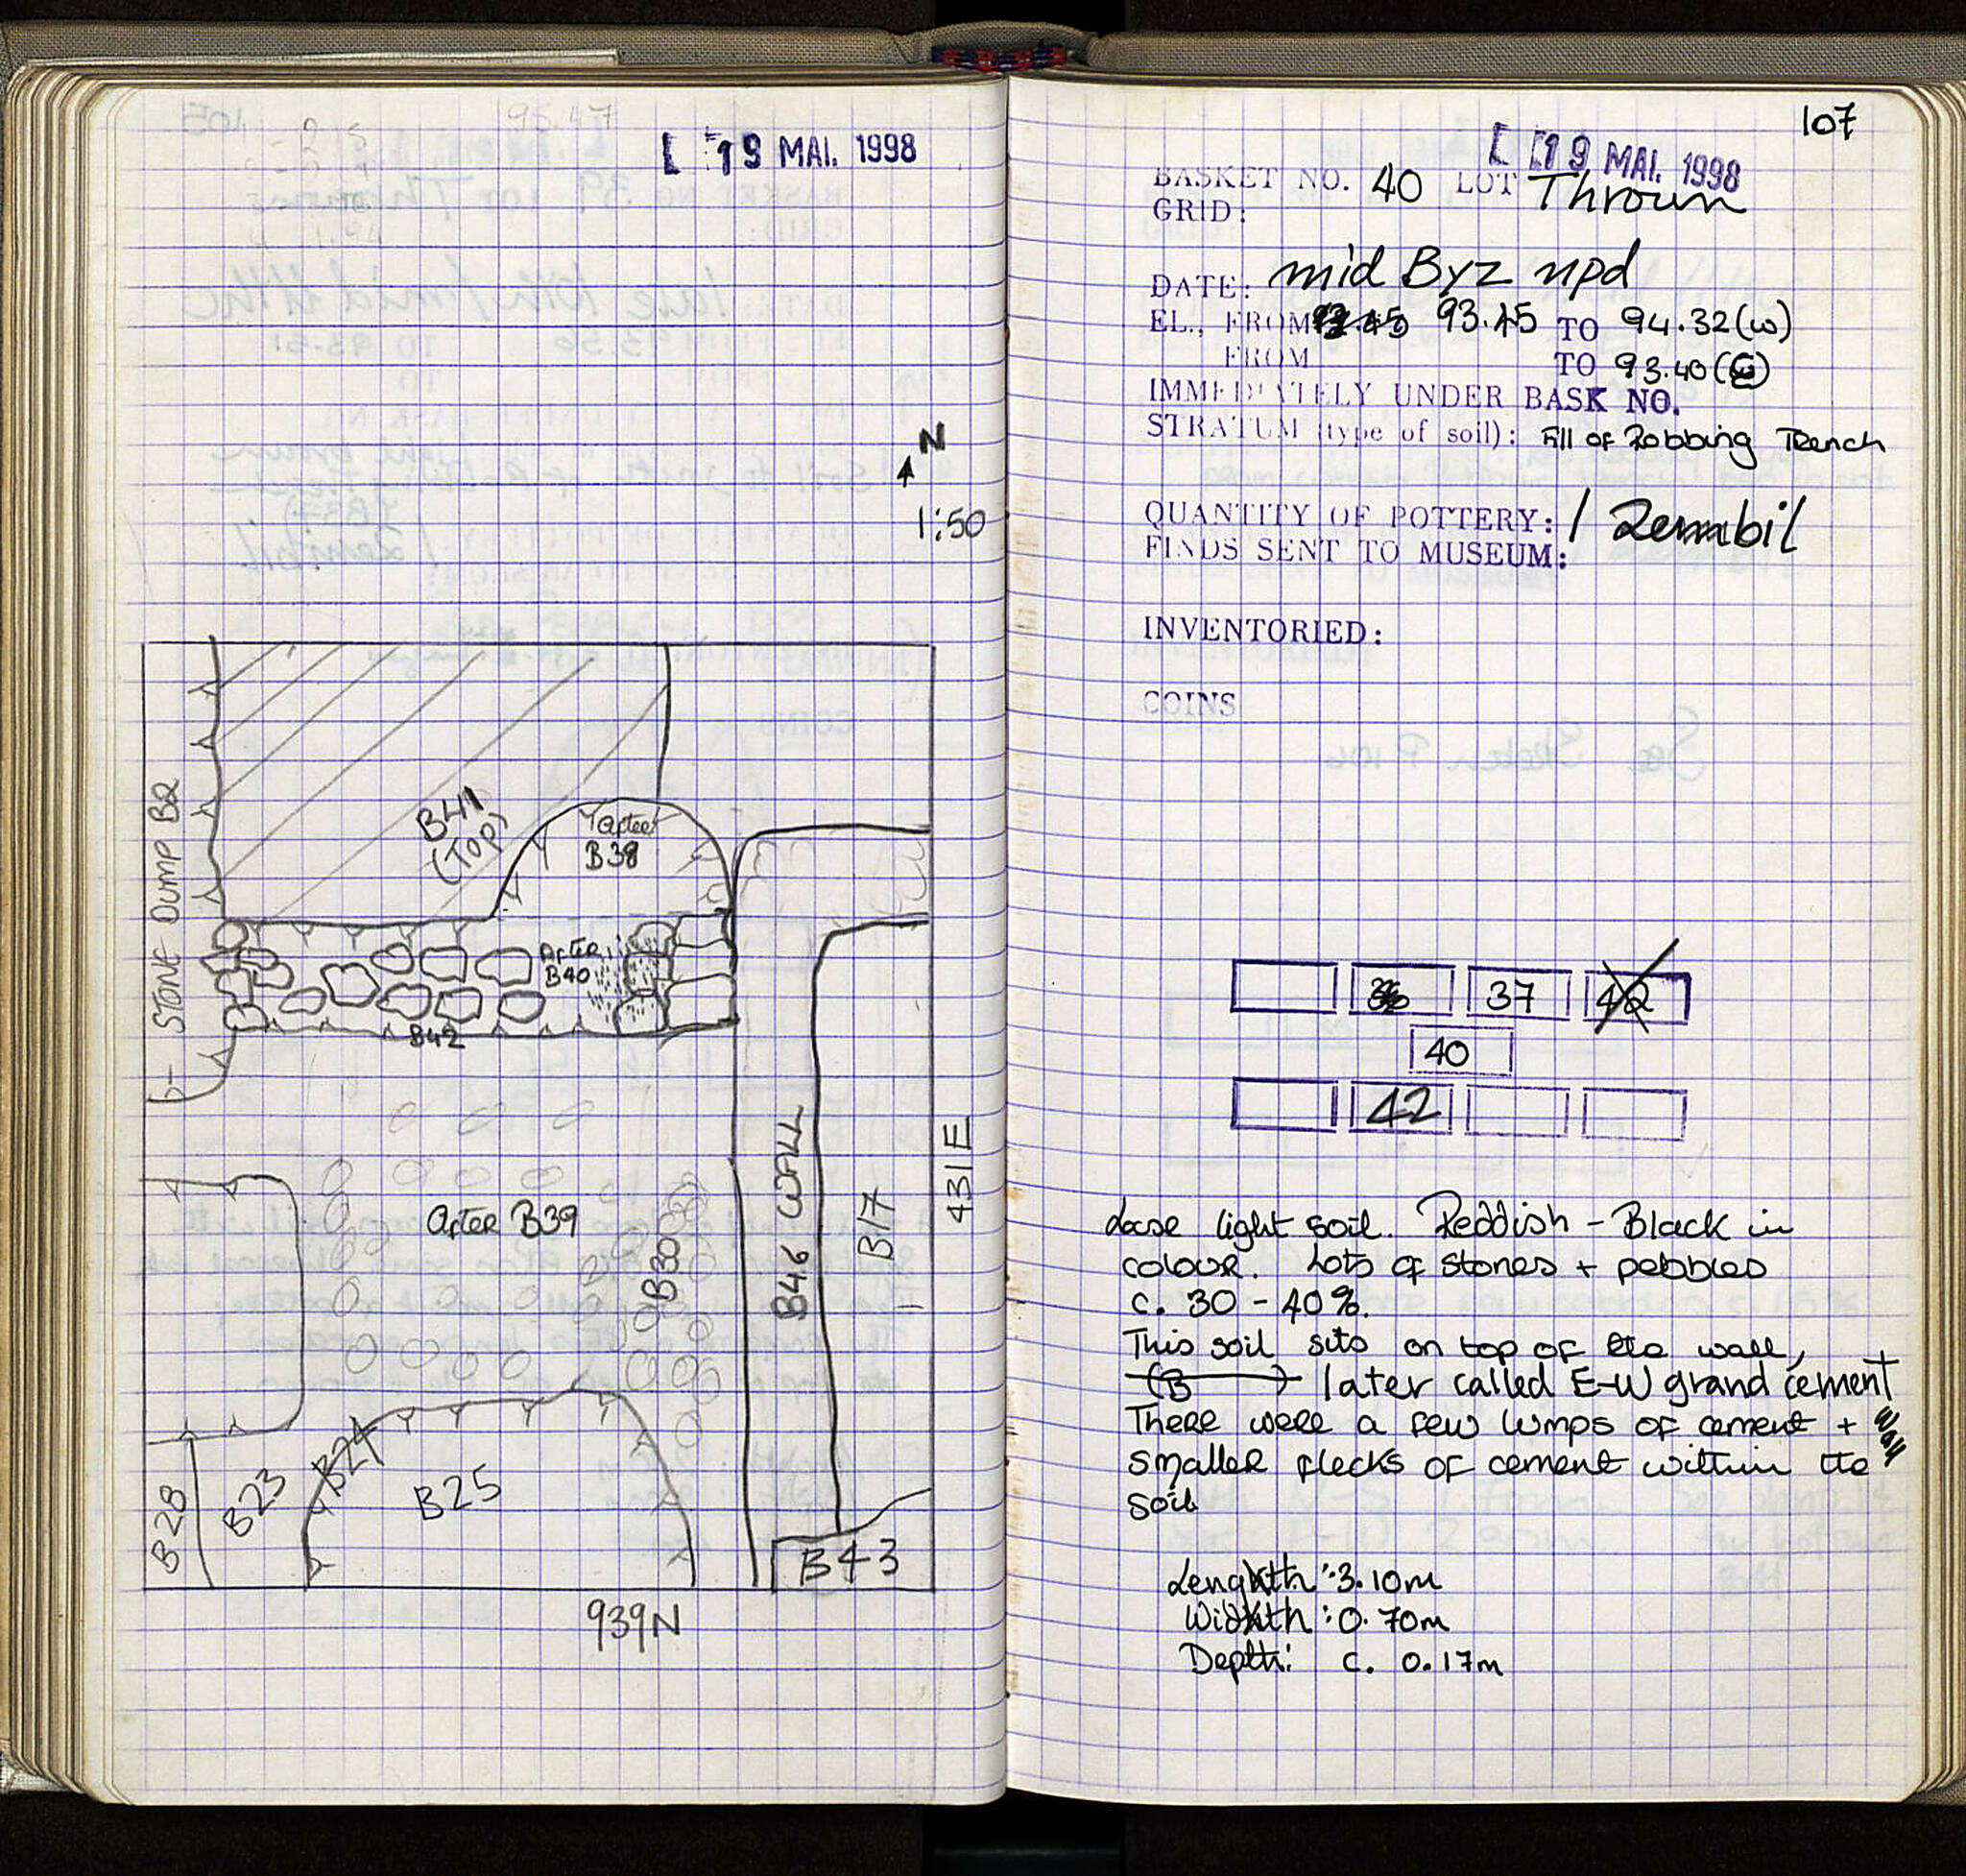 19 MAI. 1998
N
1:50
STONE DUMP B2
B41
(TOP)
After
B38
After
B40
B42
After B39
B30
B46 WALL
B17
431E
B28
B23
B24
B25
B43
939N
107
19 MAI. 1998
BASKET NO. 40 LOT Thrown
GRID:
DATE: mid Byz npd
EL., FROM 93.45 TO 94.32(w)
FROM TO 93.40(E)
IMMEDIATELY UNDER BASK NO.
STRATUM (type of soil): Fill of Robbing Trench
QUANTITY OF POTTERY: 1 Zembil
FINDS SENT TO MUSEUM:
INVENTORIED:
COINS
36 37 42
40
42
Loose light soil. Reddish - Black in
colour. Lots of stones + pebbles
c. 30 - 40%.
This soil sits on top of the wall,
(B ) later called E-W grand cement
There were a few lumps of cement + wall
smaller flecks of cement within the
soil
Length: 3.10m
Width: 0.70m
Depth: c. 0.17m